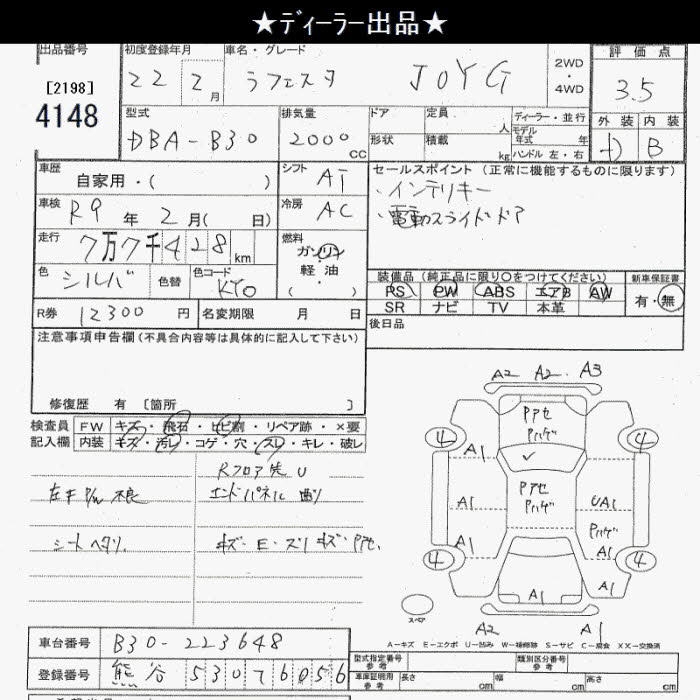 ★ディーラー出品★
出品番号
初度登録年月
車名・グレード
評価点
[2198]
4148
22 2月
ラフェスタ JOYG
2WD・4WD
3.5
型式
排気量
ドア
定員 人
ディーラー・並行
外装
内装
DBA-B30
2000 cc
形状
積載 kg
モデル年式 年
ハンドル 左・右
D
B
車歴
自家用・( )
シフト
AT
セールスポイント (正常に機能するものに限ります)
・インテリキー
車検
R9年2月( 日)
冷房
AC
・電動スライドドア
走行
7万7千428km
燃料
ガソリン
軽油
( )
色
シルバ
色替
色コード
KY0
装備品 (純正品に限り○をつけてください)
新車保証書
PS PW ABS エアB AW
SR ナビ TV 本革
有・無
R券 12300円
名変期限 月 日
後日品
注意事項申告欄 (不具合内容等は具体的に記入して下さい)
修復歴 有 [箇所 ]
検査員記入欄
FW キズ・飛石・ヒビ割・リペア跡・×要
内装 キズ・汚レ・コゲ・穴・スレ・キレ・破レ
Rフロア先 U
エンドパネル
シートヘタリ.
キズ・E・ズリキズ・Pアセ.
A2 A2 A3
Pアセ
Pハゲ
4 4
A1 A1
Pアセ
Pハゲ
A1 UA1
Pハゲ
A1 A1
4 4
A1 A1
スペア
A2 A1
A-キズ E-エクボ U-凹み W-補修跡 S-サビ C-腐食 XX-交換済
車台番号 B30-223648
登録番号 熊谷 530 7 6056
型式指定番号 参考
類別区分番号 参考
車庫証明用 参考
長さ cm
幅 cm
高さ cm